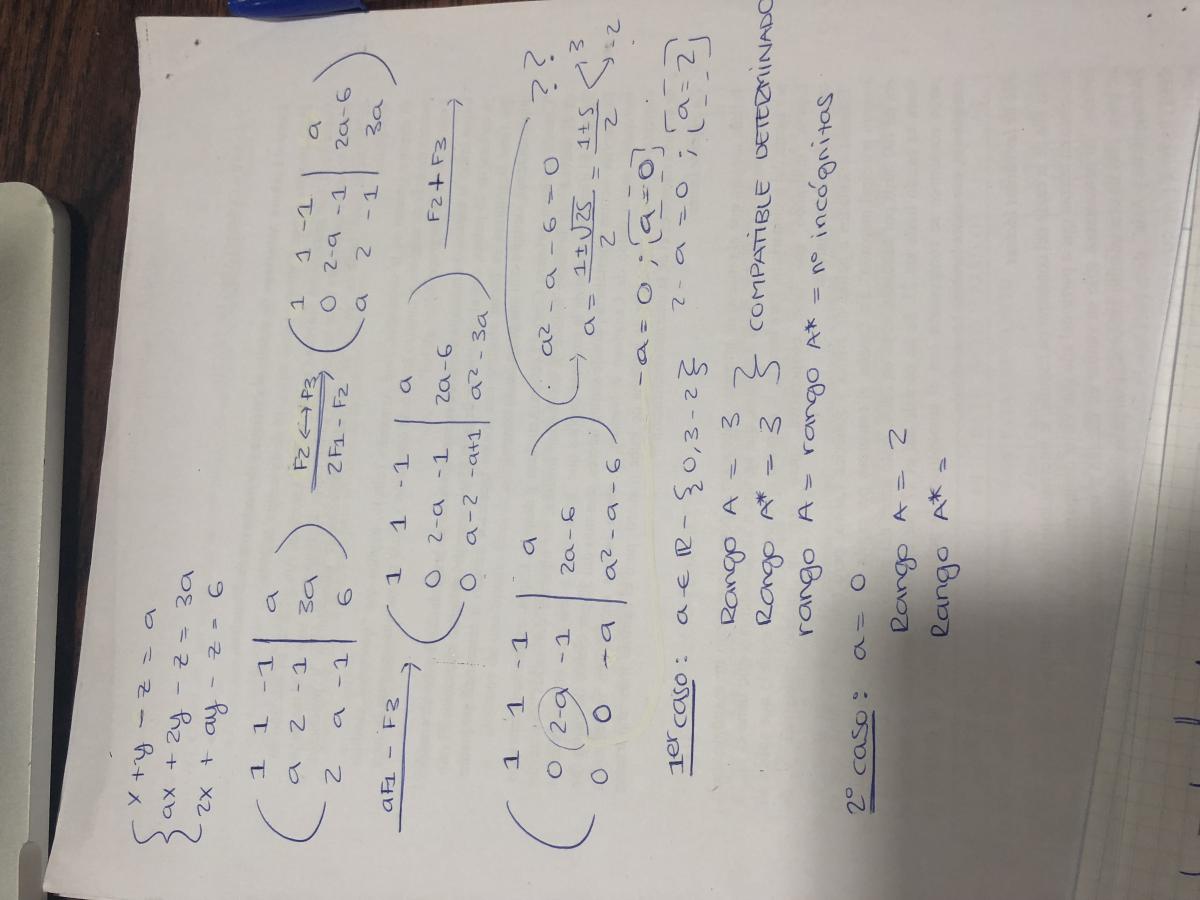 x + y - z = a
ax + 2y - z = 3a
2x + ay - z = 6
1 1 -1 | a
a 2 -1 | 3a
2 a -1 | 6
F2 ↔ F3
2F1 - F2
1 1 -1 | a
0 2-a -1 | 2a-6
a 2 -1 | 3a
aF1 - F3
1 1 -1 | a
0 2-a -1 | 2a-6
0 a-2 -a+1 | a² - 3a
F2 + F3
1 1 -1 | a
0 2-a -1 | 2a-6
0 0 -a | a² - a - 6
a² - a - 6 = 0 ??
a = 1±√25/2 = 1±5/2 3 -2
-a = 0 ; a = 0
2 - a = 0 ; a = 2
1er caso: a ∈ R - {0, 3 - 2}
Rango A = 3
Rango A* = 3 } COMPATIBLE DETERMINADO
rango A = rango A* = nº incógnitas
2º caso: a = 0
Rango A = 2
Rango A* =